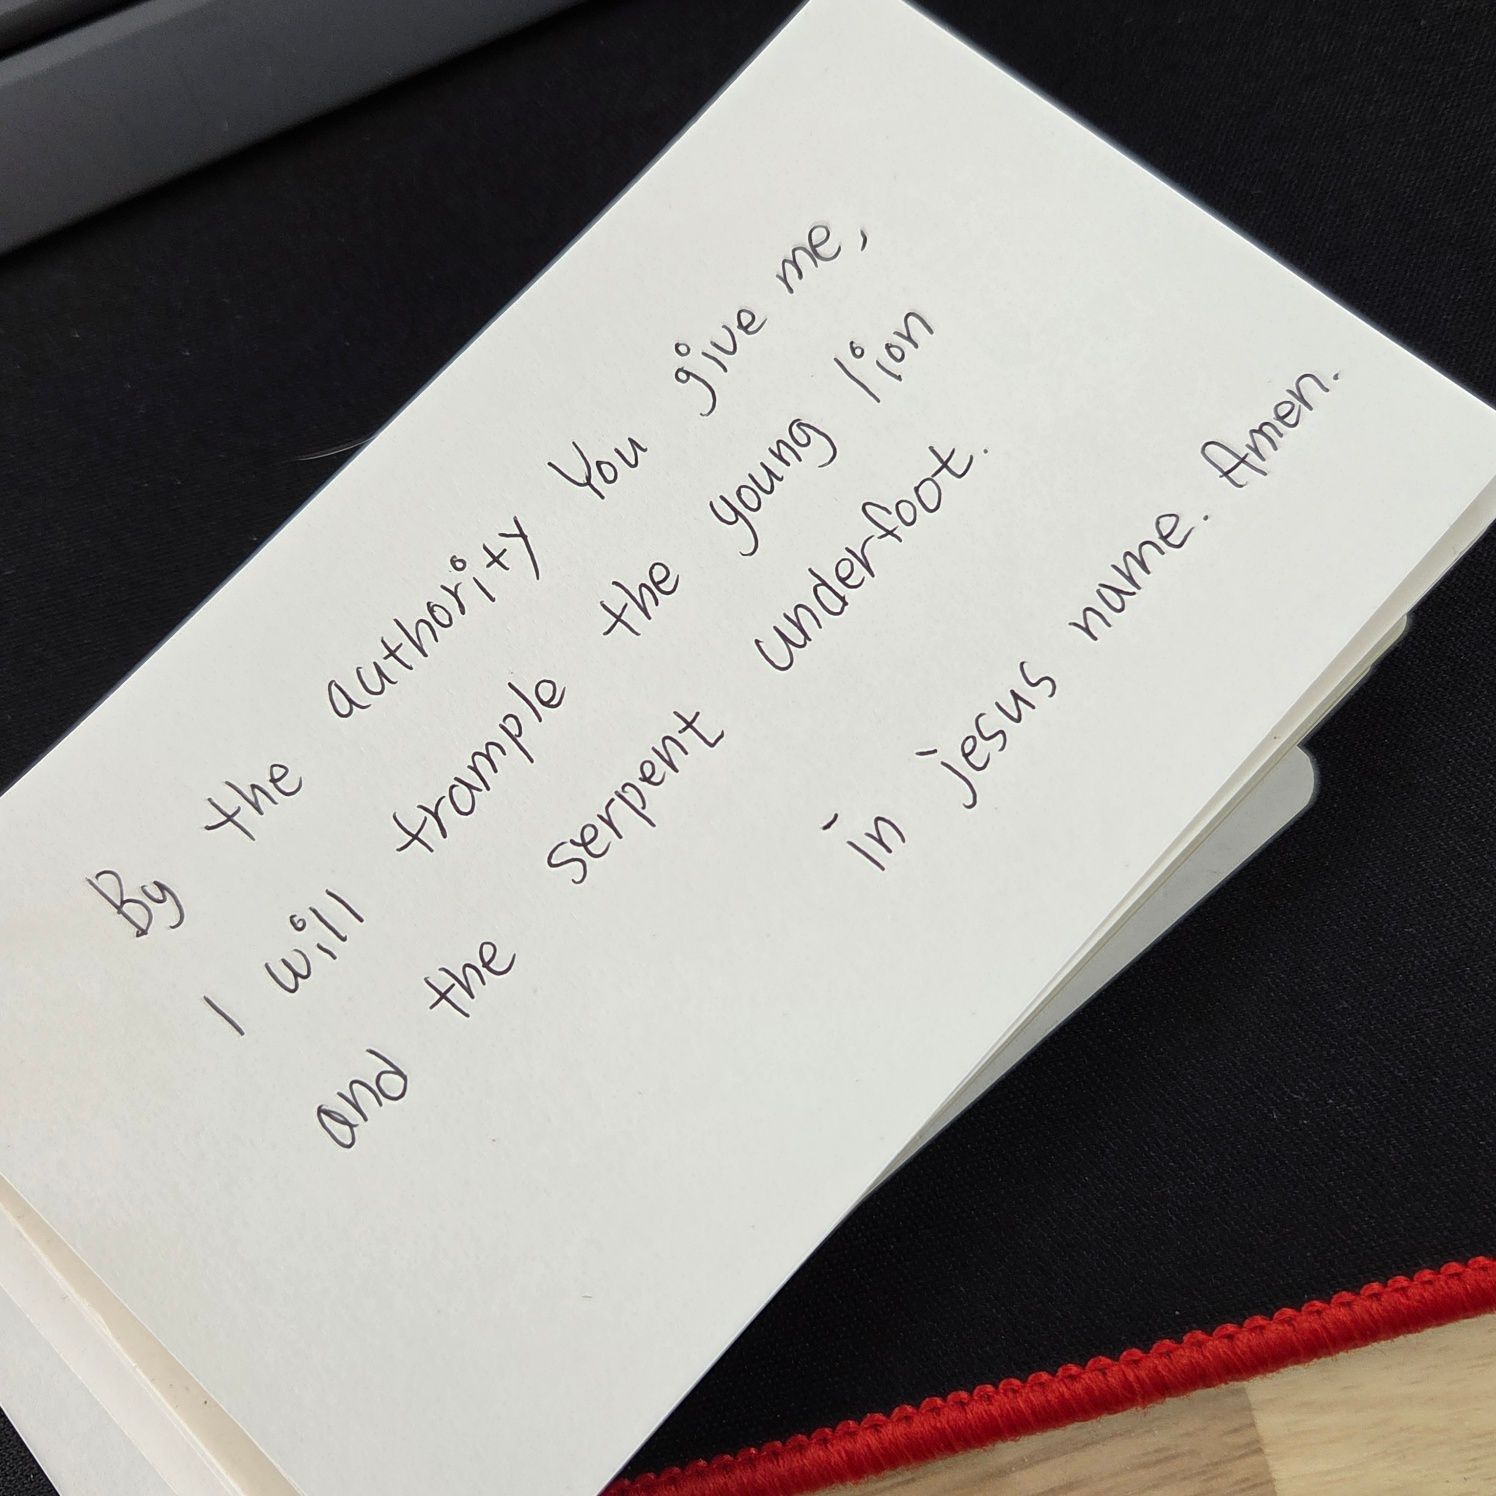 By the authority You give me,
I will trample the young lion
and the serpent underfoot.
in jesus name. Amen.